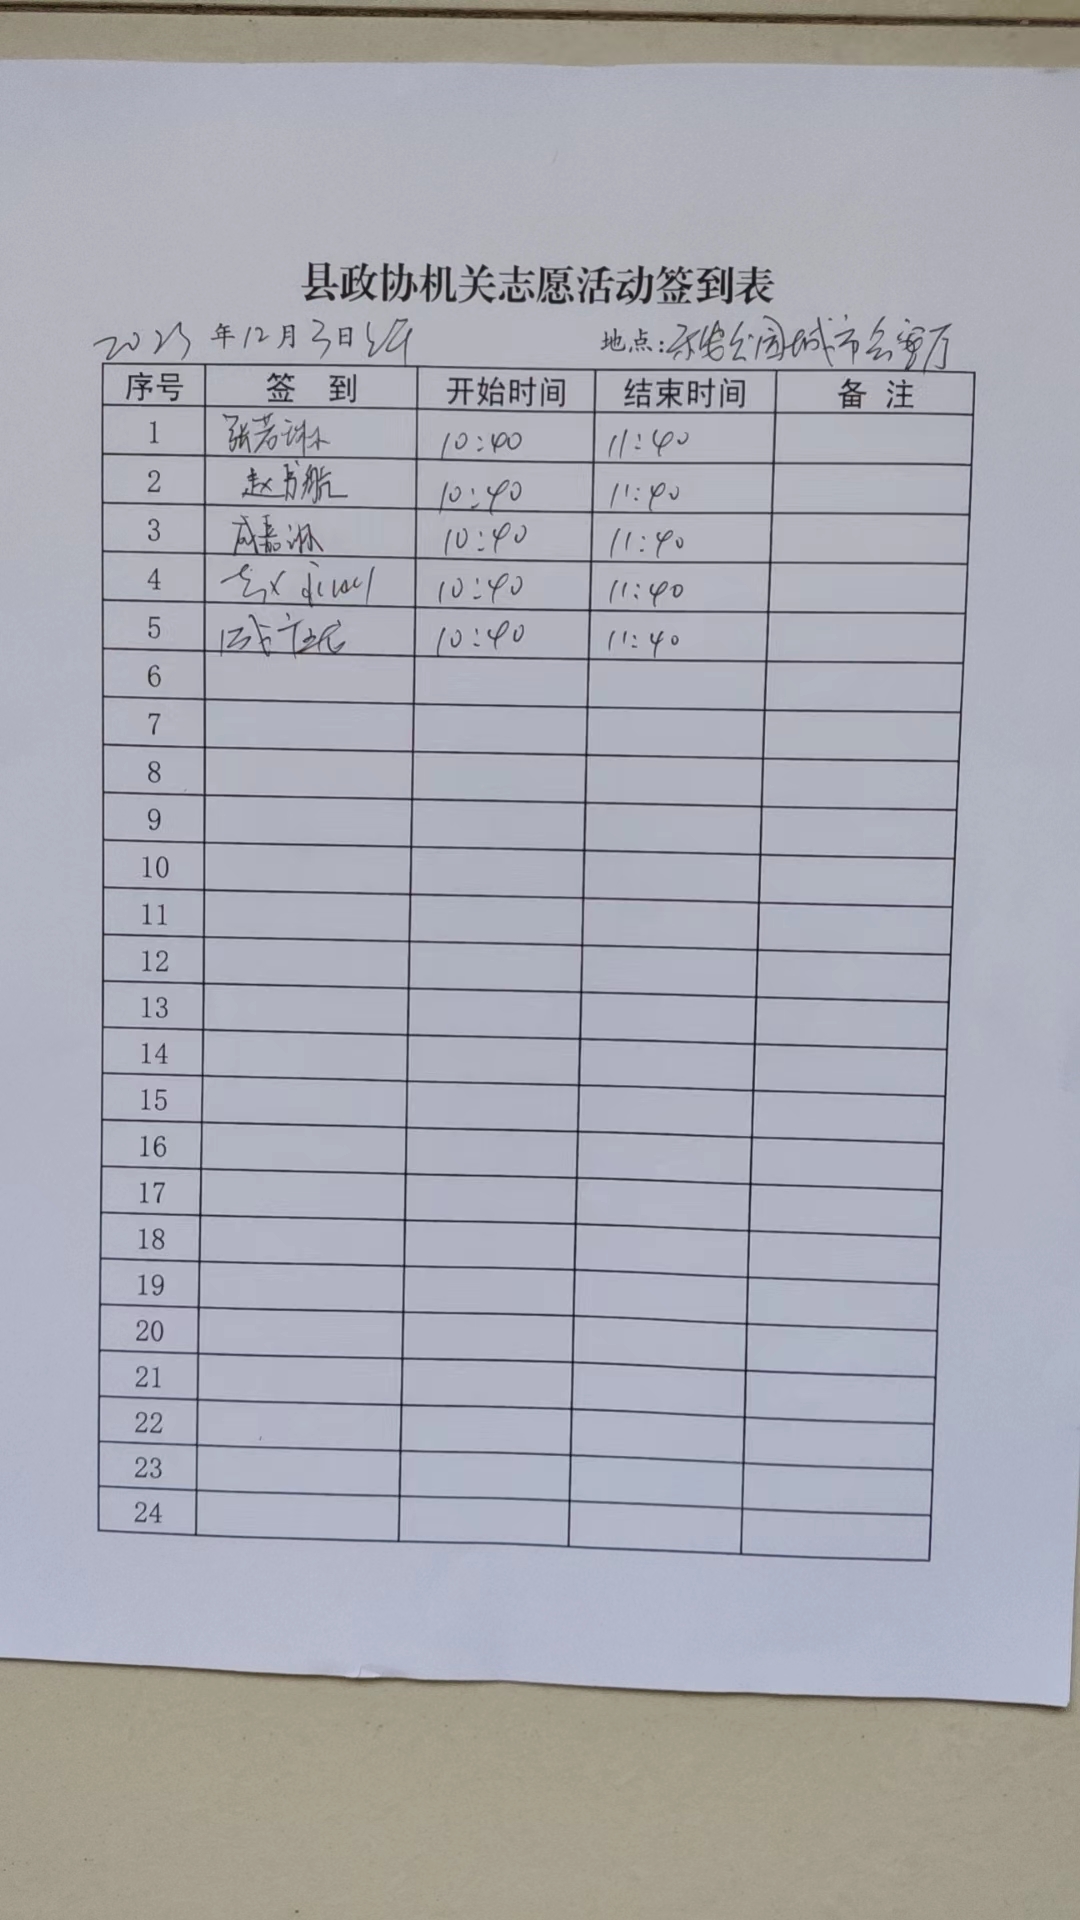 县政协机关志愿活动签到表
2023年12月3日上午 地点:乐安公园城市会客厅
序号 签 到 开始时间 结束时间 备 注
1 张若琳 10:40 11:40
2 赵书航 10:40 11:40
3 成嘉琳 10:40 11:40
4 10:40 11:40
5 10:40 11:40
6
7
8
9
10
11
12
13
14
15
16
17
18
19
20
21
22
23
24